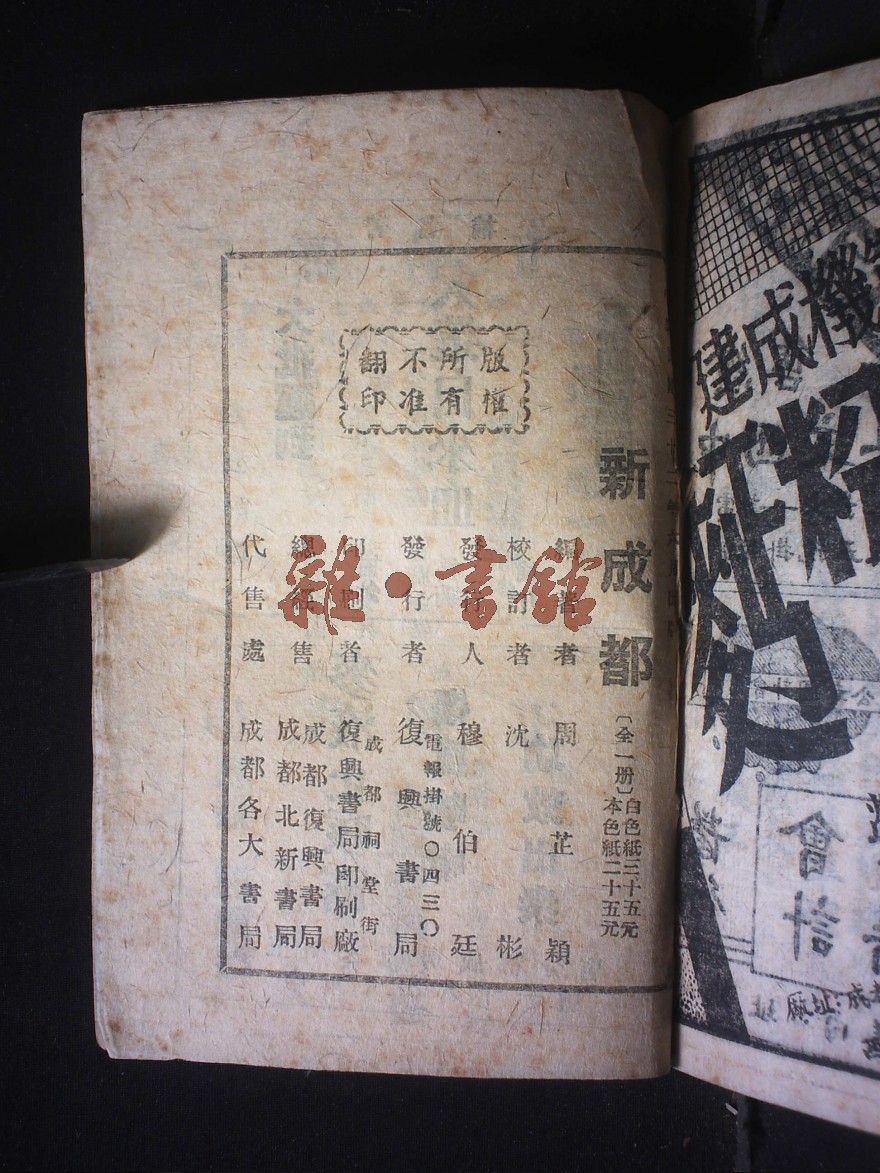 版權
所有
不准
翻印
新成都
〔全一册〕白色紙三十五元
本色紙二十五元
編著者 周芷穎
校訂者 沈彬
發行人 穆伯廷
發行者 復興書局
電報掛號〇四三〇
印刷者 復興書局印刷廠
成都祠堂街
總經售 成都復興書局
成都北新書局
代售處 成都各大書局
雜·書館
建成機
會計
廠址:成